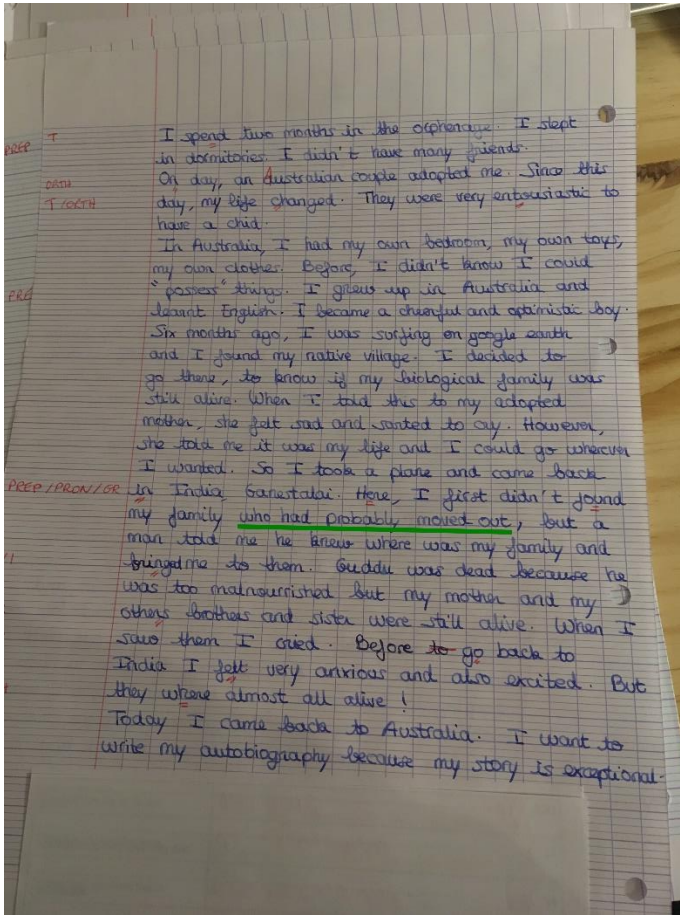 PREP T I spend two months in the orphenage. I slept
in dormitories. I didn't have many friends.
ORTH On day, an Australian couple adopted me. Since this
T/ORTH day, my life changed. They were very entousiastic to
have a chid.
In Australia, I had my own bedroom, my own toys,
my own clothes. Before, I didn't know I could
PRE "possess" things. I grew up in Australia and
learnt English. I became a cheerful and optimistic boy.
Six months ago, I was surfing on google earth
and I found my native village. I decided to
go there, to know if my biological family was
still alive. When I told this to my adopted
mother, she felt sad and santed to cry. However,
she told me it was my life and I could go wherever
I wanted. So I took a plane and came back
PREP/PRON/GR in India, Ganestalai. Here, I first didn't found
my family who had probably moved out, but a
man told me he knew where was my family and
bringed me to them. Guddu was dead because he
was too malnourrished but my mother and my
others brothers and sister were still alive. When I
saw them I cried. Before to go back to
India I felt very anxious and also excited. But
they where almost all alive !
Today I came back to Australia. I want to
write my autobiography because my story is exceptional.